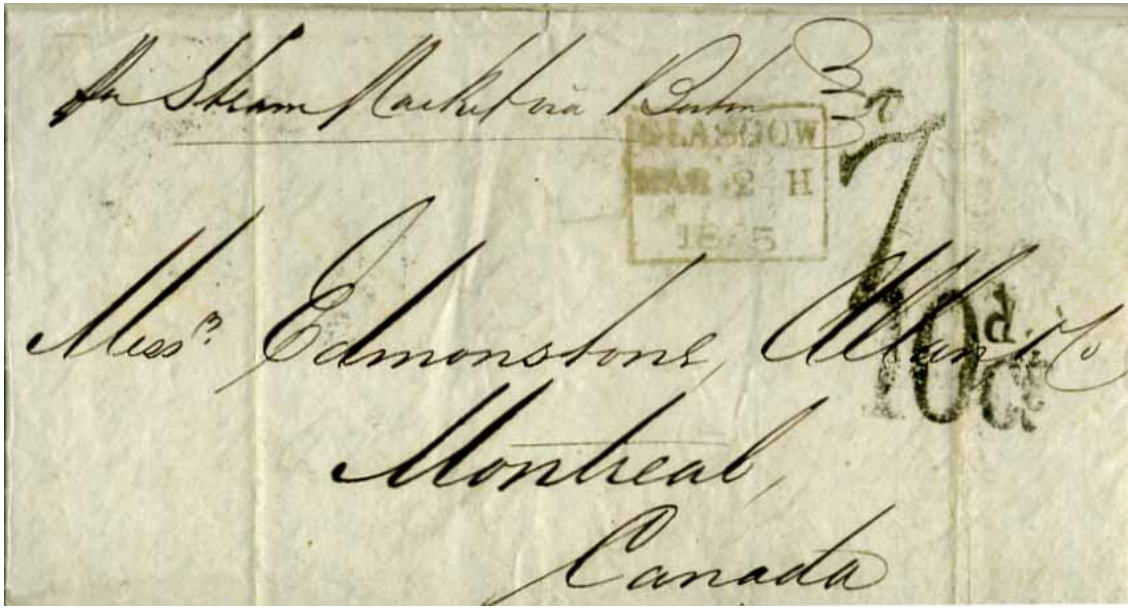 Per Steam Packet via Boston
GLASGOW
MAR 2 H
18 5
7
Messrs Edmonstone, Allan & Co
10d. Cy
Montreal,
Canada